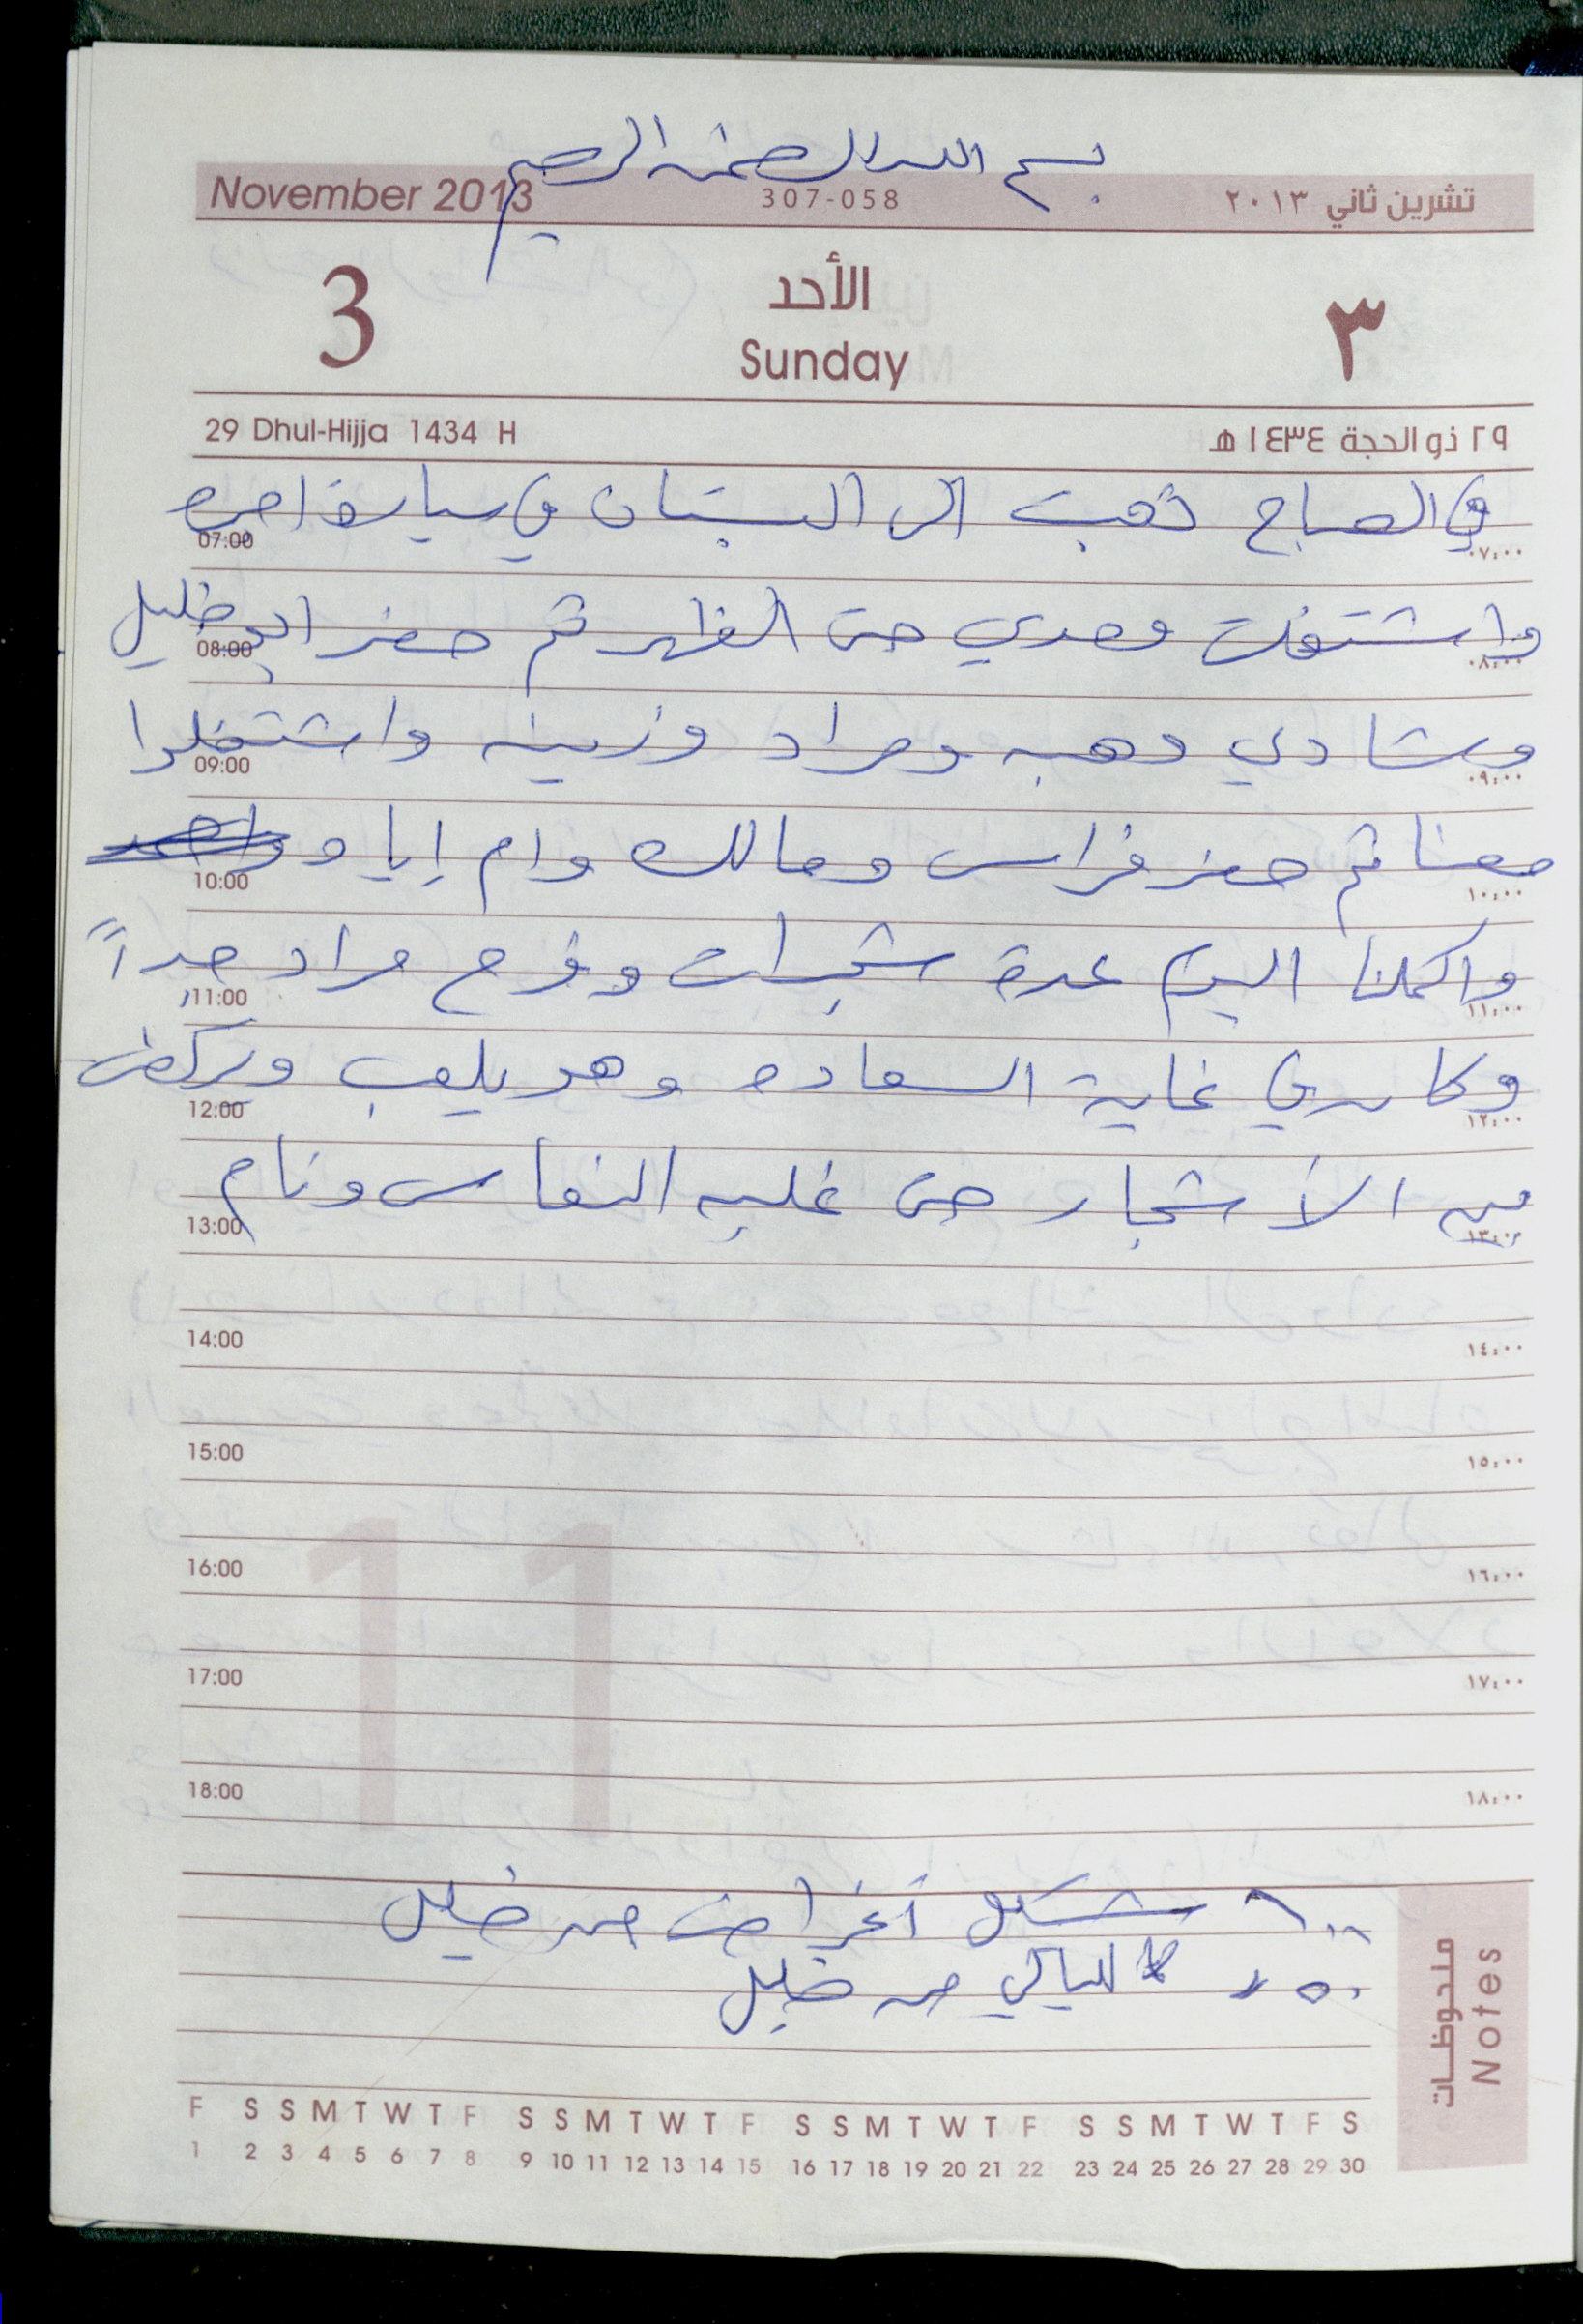 بسم الله الرحمن الرحيم
November 2013 307-058 تشرين ثاني ٢٠١٣
3 الأحد ٣
Sunday
29 Dhul-Hijja 1434 H ٢٩ ذو الحجة ١٤٣٤ هـ
في الصباح ذهبت الى البستان في سيارة اجره
07:00 ٠٧:٠٠
واشتغلت وحدي حتى الظهر ثم حضر ابو خليل
08:00 ٠٨:٠٠
وشادي وهبه ومراد وزينه واشتغلوا
09:00 ٠٩:٠٠
معنا ثم حضر فراس ومالك وام إياد
10:00 ١٠:٠٠
واكملنا اليوم عدة شجرات وفرح مراد جداً
11:00 ١١:٠٠
وكان في غاية السعاده وهو يلعب ويركض
12:00 ١٢:٠٠
بين الأشجار حتى غلبه النعاس ونام
13:00 ١٣:٠٠
14:00 ١٤:٠٠
15:00 ١٥:٠٠
16:00 ١٦:٠٠
17:00 ١٧:٠٠
18:00 ١٨:٠٠
11
شيكل أغراض من خليل
لليالي من خليل
ملحوظات
Notes
F S S M T W T F S S M T W T F S S M T W T F S S M T W T F S
1 2 3 4 5 6 7 8 9 10 11 12 13 14 15 16 17 18 19 20 21 22 23 24 25 26 27 28 29 30